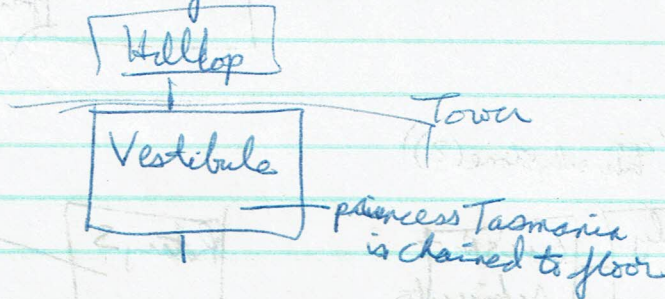 Hilltop
Tower
Vestibule
princess Tasmania
is chained to floor